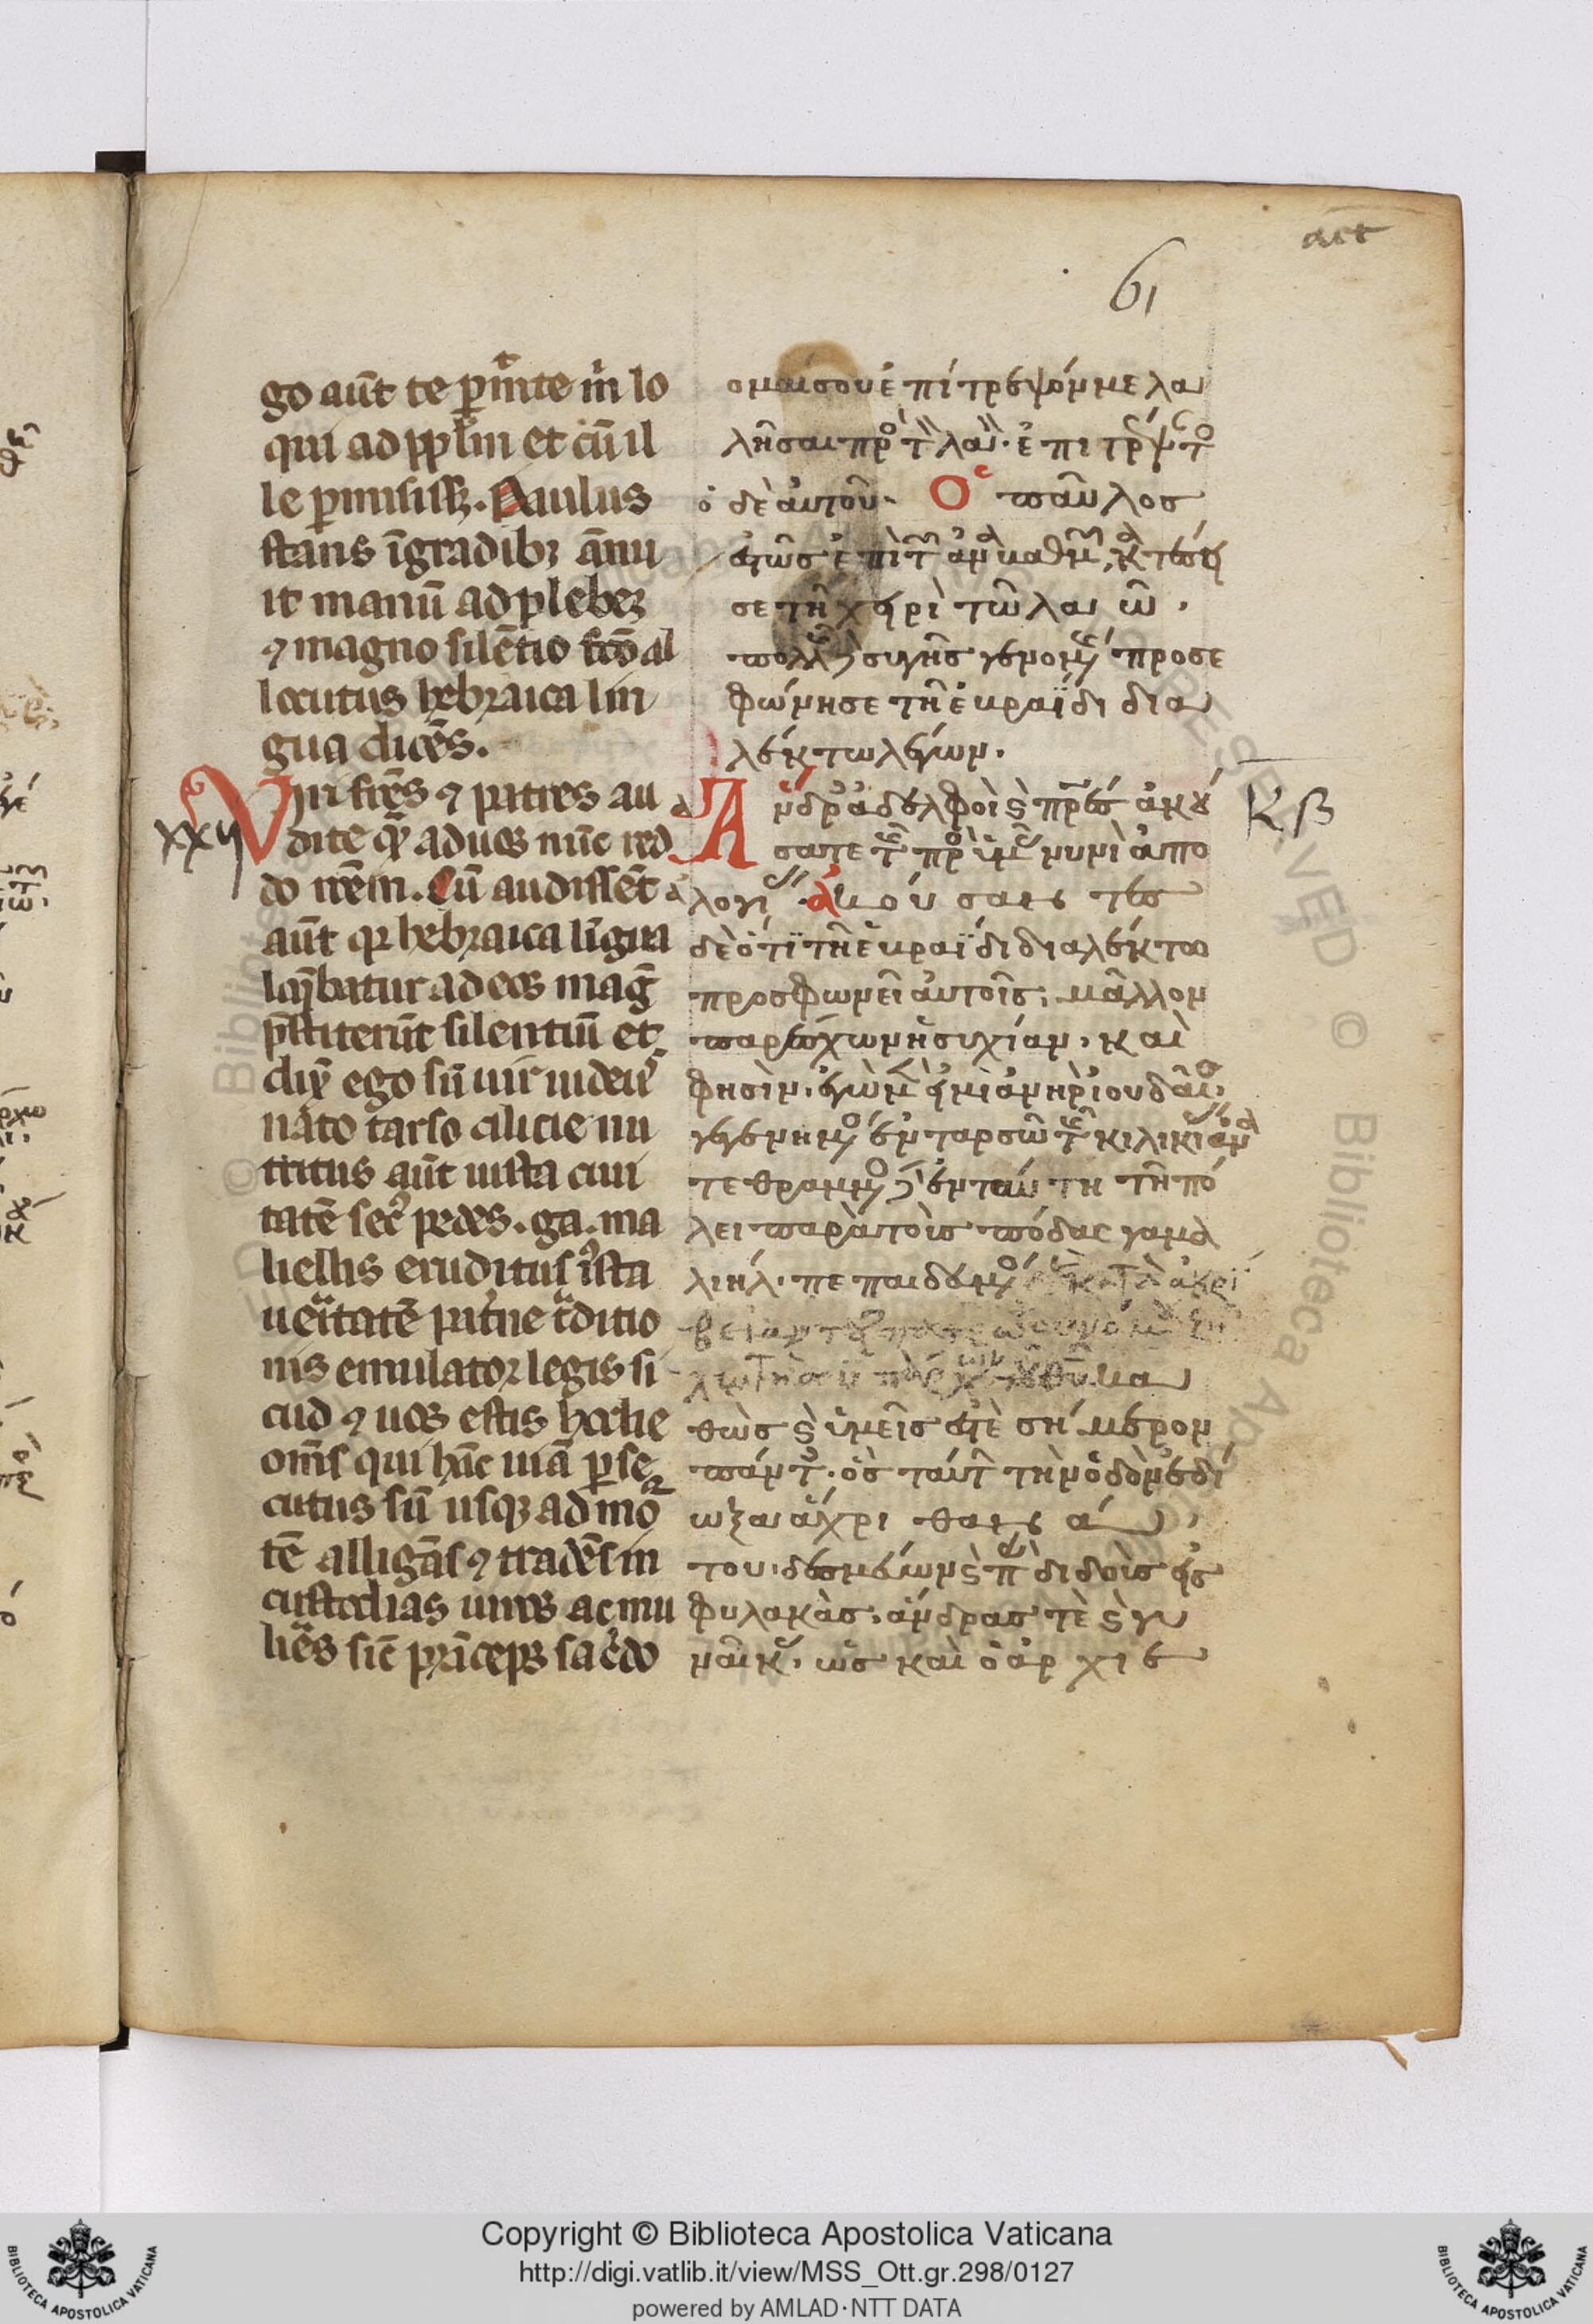 act
61
go aut̄ te ꝑmit̄te m̓ lo
qui ad ppl̄m et cū il
le ꝑmisiss;. Paulus
stans ī gradib; ānu
it manū ad plebeꝫ
⁊ magno silētio fc̄o al
locutus hebraica lin
gua dicēs.
Viri frēs ⁊ patres au
xxij
dite q̄ꝫ ad uos nūc red
do rōem. Cū audissēt
aut̄ qꝛ hebraica līgua
loq̄batur ad eos maḡ
p̄stiterūt silentiū et
dix̄ ego sū uir iudeꝰ
nato tarso cilicie nu
tritus aut̄ iusta ciui
tatē secꝰ pedes. ga. ma
lielis eruditus iꝰsta
ueritatē pat̓ne t̄ditio
nis emulator legis si
cud ⁊ uos estis hodie
om̄s qui hāc uiā ꝑse
cutus sū usqꝫ ad moꝛ
tē alligās ⁊ tradēs in
custodias uiros ac mu
lie͂s sic̄ prīceps sac̓do
ομαι σου ἐπίτρεψόν με λα
λῆσαι πρὸ τ̀ λαὸ. ἐπιτρέψτο
ὁ δὲ αὐτοῦ. Ὁ παῦλος
ἑστὼς ἐπὶ τ ἀναβαθμ, κατέσει
σε τῆ χειρὶ τῶ λαῶ.
πολλῆς σιγῆς γενομέ προσε
φώνησε τῆ ἑβραΐδι δια
λέκτω λέγων.
Ἄνδρ ἀδελφοὶ ϛ̀ πρες ἀκού
κβ
σατε τῆ πρὸ ὑμᾶ νυνὶ ἀπο
λογί ἀκούσαντες
δὲ ὅτϊ τῆ ἑβραΐδι διαλέκτω
προσφωνεῖ αὐτοῖς, μᾶλλον
παρέσχων ἡσυχίαν. καὶ
φησὶν. ἐγὼ μ εἰμὶ ἀνὴρ ἰουδαῖο
γεγενημο ἐν ταρσῶ τῆ κιλικία
τεθραμμο ἐν ταύτη τῆ πό
λει παρὰ τοὺς πόδας γαμα
λιήλ. πεπαιδευμο κατὰ ἀκρί
θὼς ϛ̀ ὑμεῖς ἐστὲ σήμερον
πάντ. ὃς ταύτ τὴν ὁδὸν ἐδί
ωξα ἄχρι θανά
του. δεσμεύων ϛ̀ παραδιδοὺς εἰς
φυλακὰς. ἄνδρας τὲ ϛ̀ γυ
ναῖκ. ὡς καὶ ὁ ἀρχιε
Copyright © Biblioteca Apostolica Vaticana
http://digi.vatlib.it/view/MSS_Ott.gr.298/0127
powered by AMLAD·NTT DATA